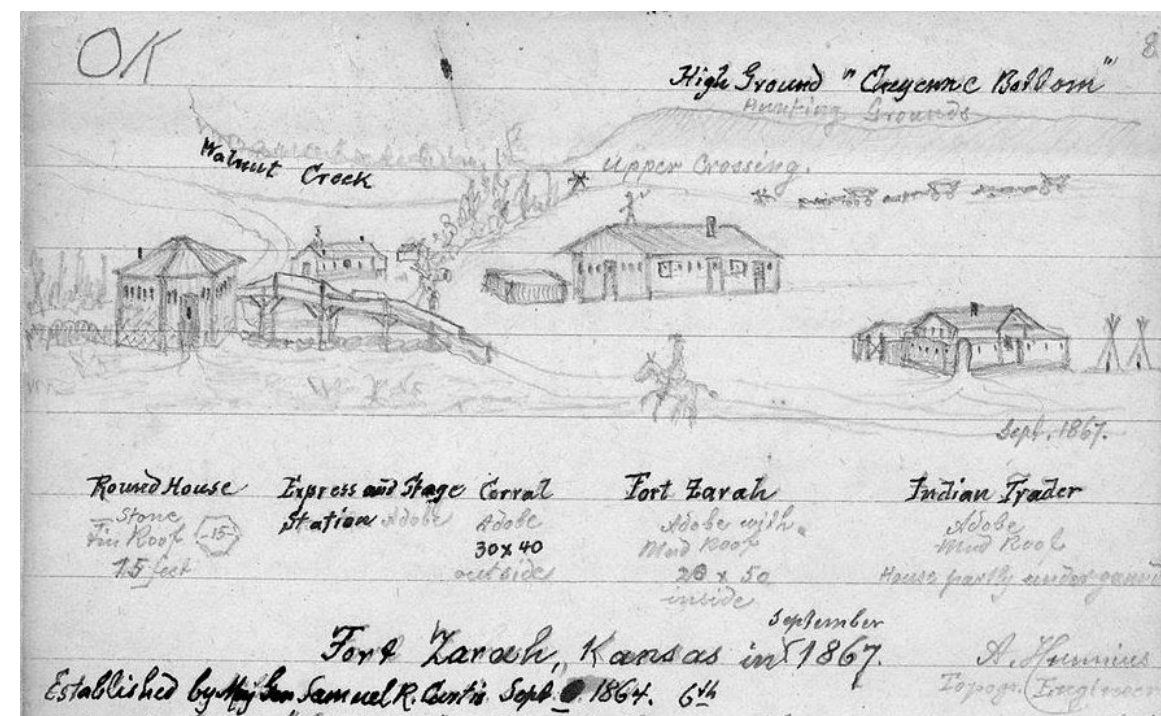 OK
8
High Ground "Cheyenne Bottom"
Hunting Grounds
Walnut Creek
Upper Crossing.
Sept. 1867.
Round House
Stone
Tin Roof -15-
15 feet
Express and Stage
Station Adobe
Corral
Adobe
30 x 40
outside
Fort Zarah
Adobe with
Mud Roof
20 x 50
inside
Indian Trader
Adobe
Mud Roof
House partly under ground
Fort Zarah, Kansas in September 1867.
A. Hunnius
Topogr. Engineer
Established by Maj Gen Samuel R. Curtis Sept 1864. 6th